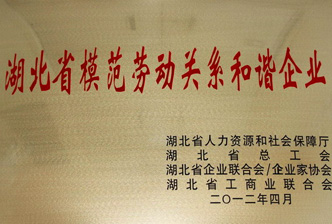 湖北省模范劳动关系和谐企业
湖北省人力资源和社会保障厅
湖北省总工会
湖北省企业联合会/企业家协会
湖北省工商业联合会
二〇一二年四月